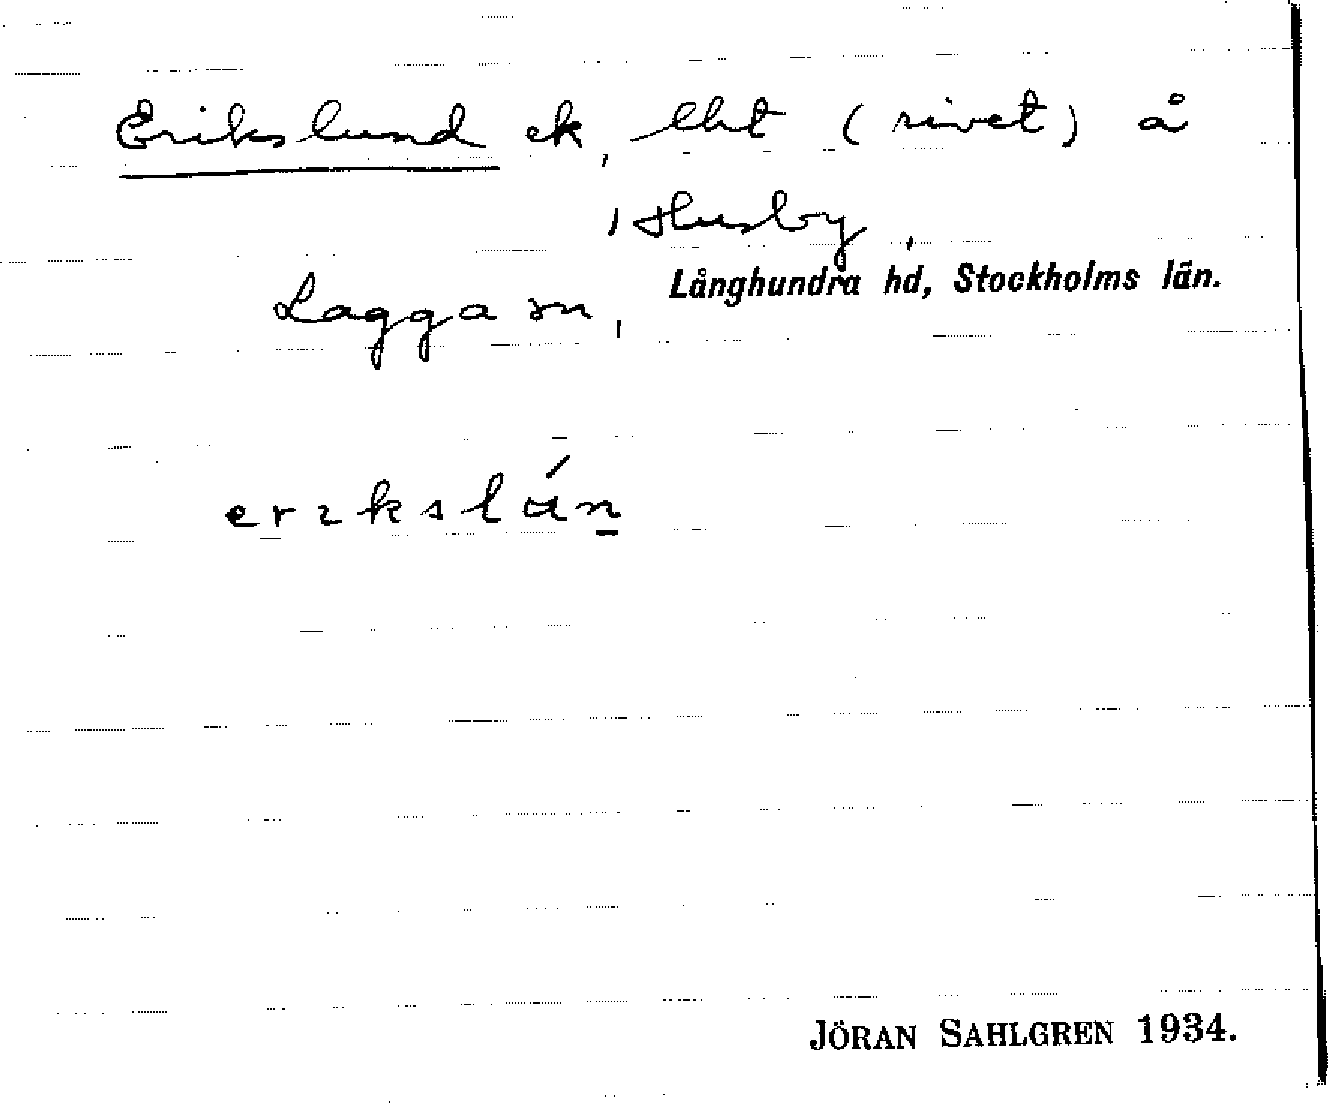 Erikslund ek, lht (rivet) å
Husby,
Lagga sn, Långhundra hd, Stockholms län.
erikslún
JÖRAN SAHLGREN 1934.